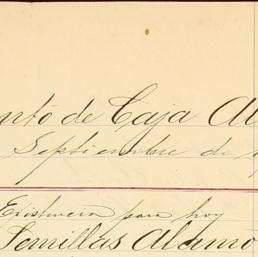 nto de Caja Al
Septiembre de
Existencia para hoy
Semillas Alamo